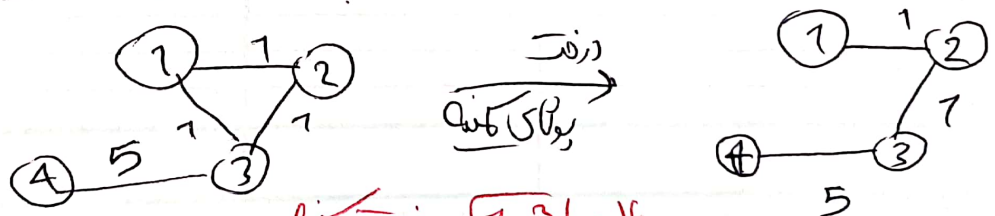 1 1 2
1 1
4 5 3
درخت
پوشای کمینه
1 1 2
1
4 3
5